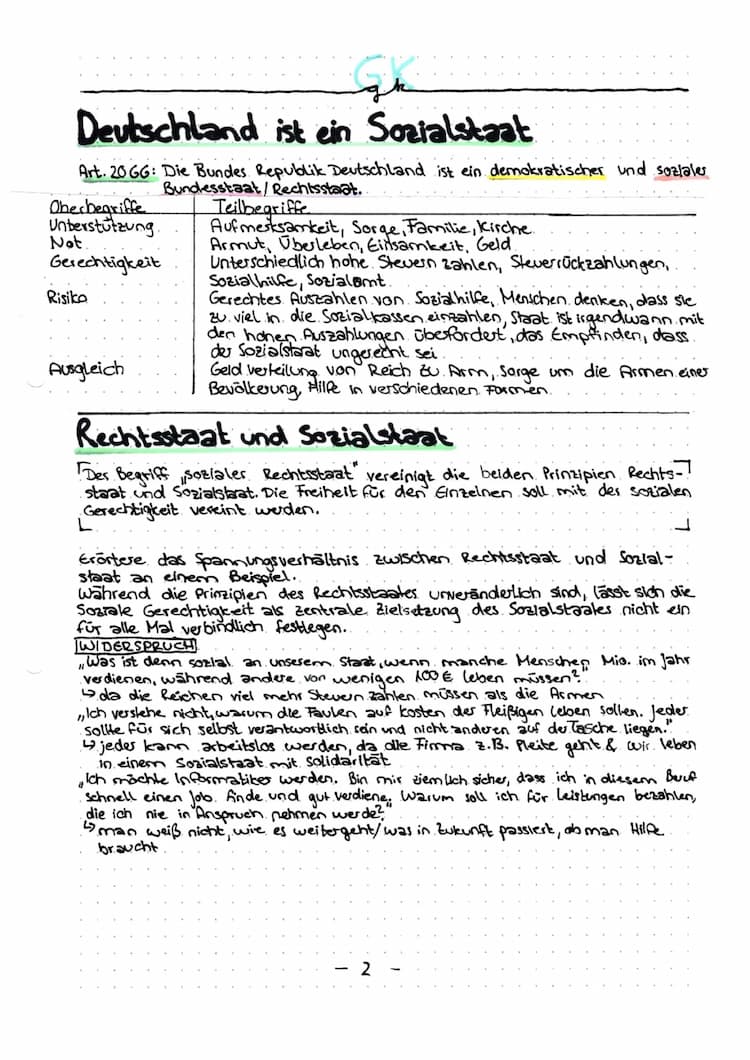 GK
gk
Deutschland ist ein Sozialstaat
Art. 20 GG: Die Bundes Republik Deutschland ist ein demokratischer und sozialer
Bundesstaat/Rechtsstaat.
Oberbegriffe Teilbegriffe
Unterstützung Aufmerksamkeit, Sorge, Familie, Kirche
Not Armut, Überleben, Einsamkeit, Geld
Gerechtigkeit Unterschiedlich hohe Steuern zahlen, Steuerrückzahlungen,
Sozialhilfe, Sozialamt
Risiko Gerechtes Auszahlen von Sozialhilfe, Menschen denken, dass sie
zu viel in die Sozialkassen einzahlen, Staat ist irgendwann mit
den hohen Auszahlungen überfordert, das Empfinden, dass
der Sozialstaat ungerecht sei
Ausgleich Geld verteilung von Reich zu Arm, Sorge um die Armen einer
Bevölkerung, Hilfe in verschiedenen Formen
Rechtsstaat und Sozialstaat
Der Begriff „sozialer Rechtsstaat" vereinigt die beiden Prinzipien Rechts-
staat und Sozialstaat. Die Freiheit für den Einzelnen soll mit der sozialen
Gerechtigkeit vereint werden.
Erörtere das Spannungsverhältnis zwischen Rechtsstaat und Sozial-
staat an einem Beispiel.
Während die Prinzipien des Rechtsstaates unveränderlich sind, lässt sich die
Soziale Gerechtigkeit als zentrale Zielsetzung des Sozialstaates nicht ein
für alle Mal verbindlich festlegen.
WIDERSPRUCH
„Was ist denn sozial an unserem Staat, wenn manche Menschen Mio. im Jahr
verdienen, während andere von wenigen 100€ leben müssen?"
↳ da die Reichen viel mehr Steuern zahlen müssen als die Armen
„Ich verstehe nicht, warum die Faulen auf kosten der Fleißigen leben sollen. Jeder
sollte für sich selbst verantwortlich sein und nicht anderen auf der Tasche liegen."
↳ jeder kann arbeitslos werden, da die Firma z.B. Pleite geht & wir leben
in einem Sozialstaat mit solidarität
„Ich möchte Informatiker werden. Bin mir ziemlich sicher, dass ich in diesem Beruf
schnell einen Job finde und gut verdiene. Warum soll ich für Leistungen bezahlen,
die ich nie in Anspruch nehmen werde?"
↳ man weiß nicht, wie es weitergeht/was in Zukunft passiert, ob man Hilfe
braucht
- 2 -